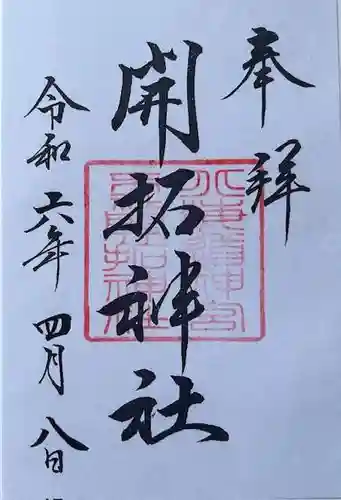 奉拝
開拓神社
令和六年四月八日
北海道神宮
開拓神社